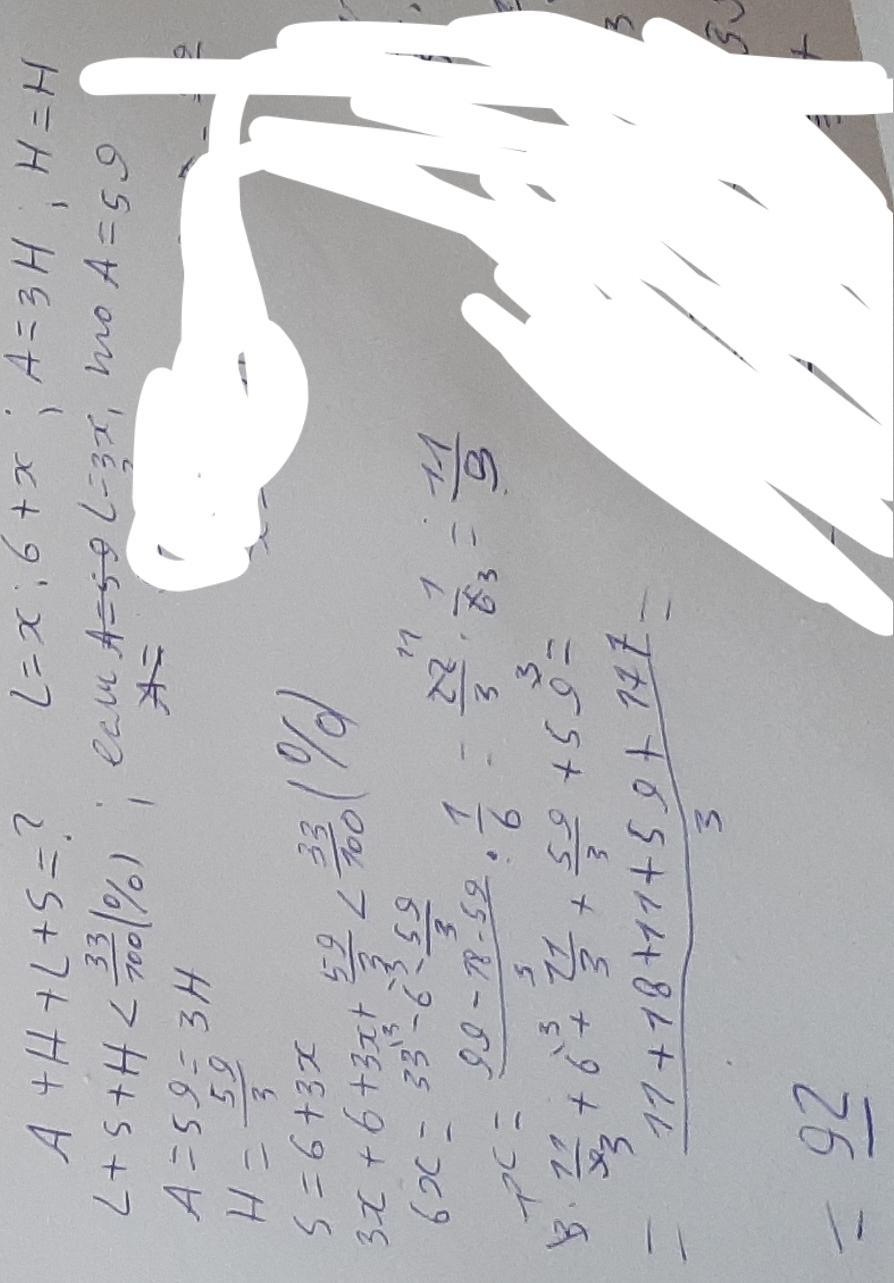 A + H + L + S = ? L = x ; 6 + x ; A = 3H ; H = H
L + S + H < 33/100 (%) ; если A = 59 L = 3x, то A = 59
A = 59 = 3H A =
H = 59/3
S = 6 + 3x
3x + 6 + 3x + 59/3 < 33/100 (%)
6x = 33 - 6 - 59/3
x = 99 - 18 - 59/3 · 1/6 = 22/3 · 1/6 = 11/9
3 · 11/9 + 6 + 11/3 + 59/3 + 59 =
= 11 + 18 + 11 + 59 + 177/3 =
= 92